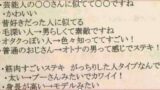 ・芸能人の〇〇さんに似てて〇〇ですね
・かわいい
・昔好きだった人に似てる
・毛深い人→男らしくて素敵ですね
・オタクっぽい人→色々知っててすごい!
・普通のおじさん→オトナの男って感じでステキ!
・筋肉すごいステキ がっちりした人タイプなんで
・太い→プーさんみたいでカワイイ!
・身長が高い→モデルみたい